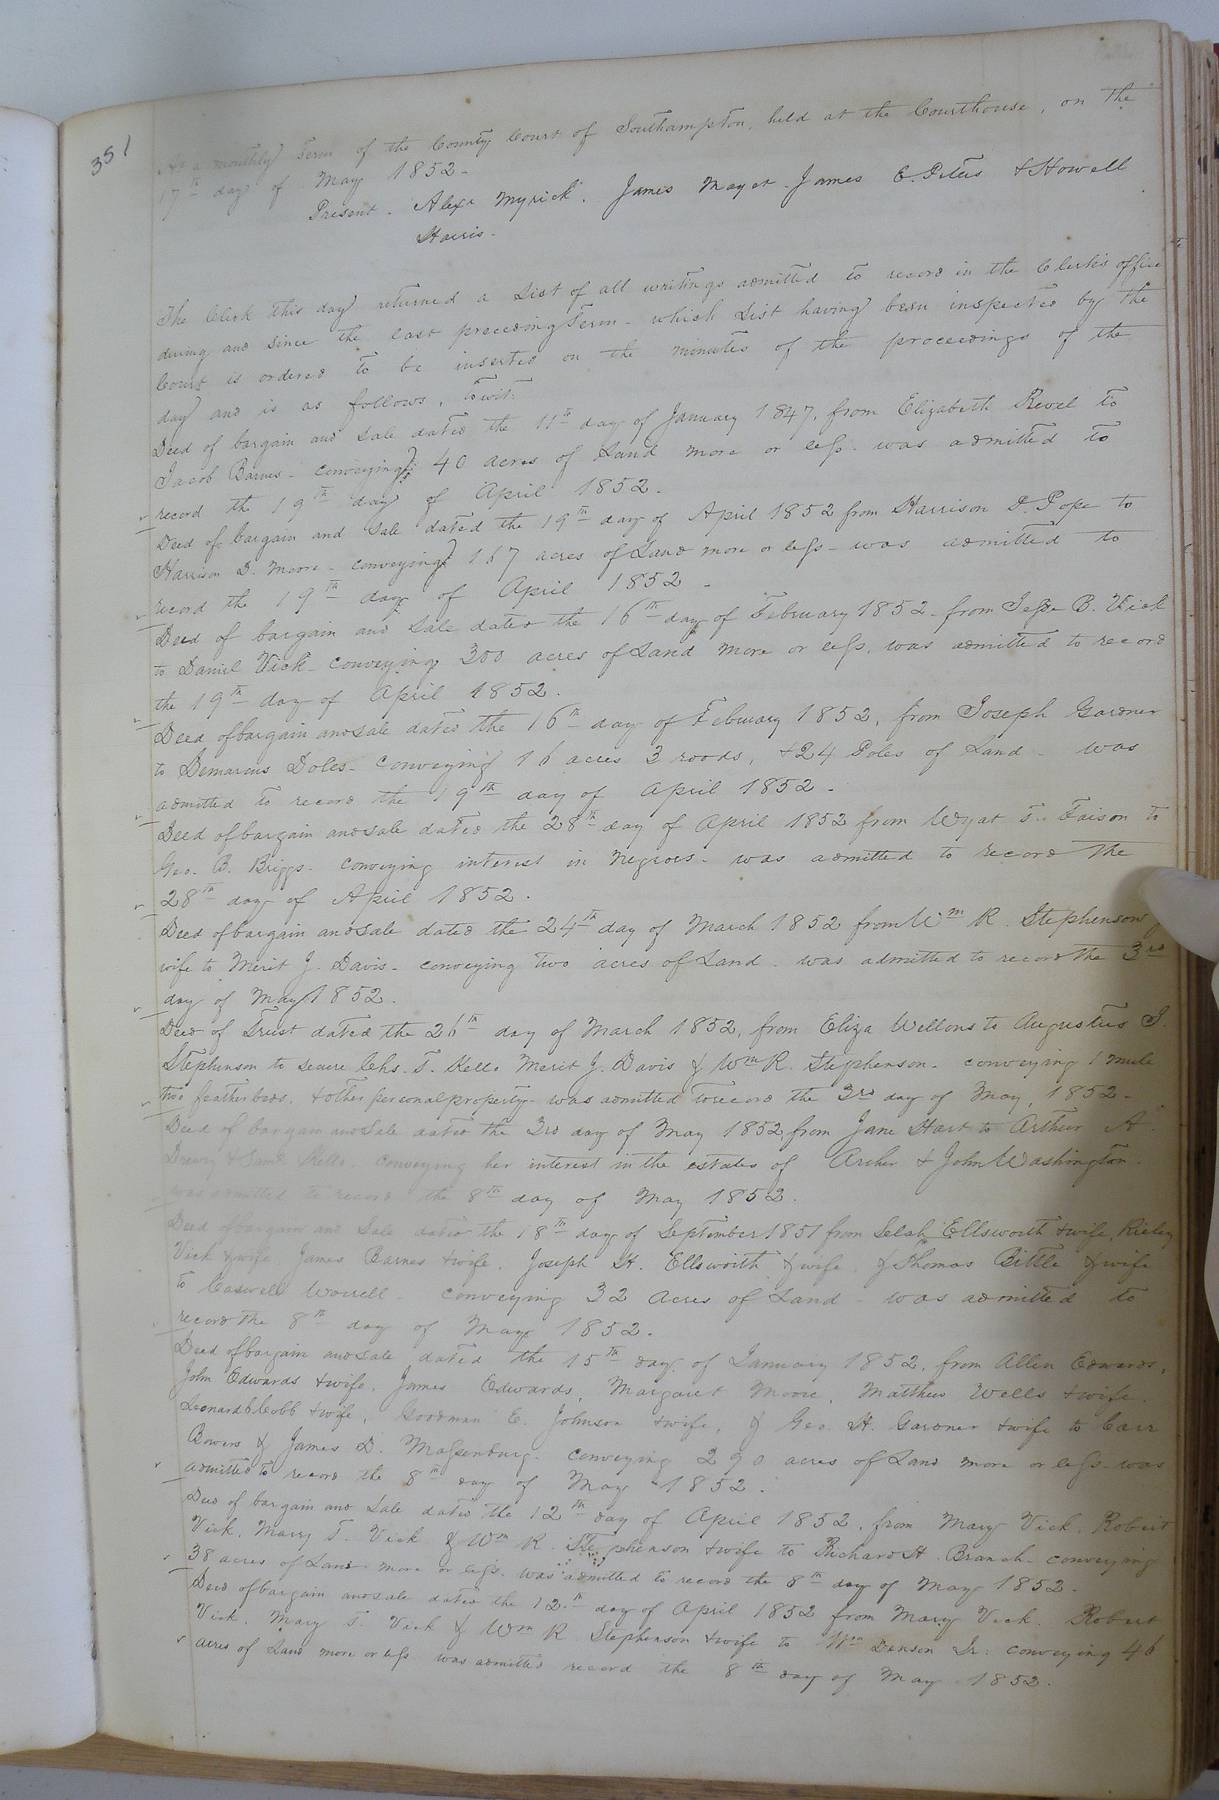 351
At a monthly Term of the County Court of Southampton, held at the Courthouse, on the
17th day of May 1852.
Present. Alexr Myrick. James Maget. James E. Peters & Howell
Harris.
The Clerk this day returned a List of all writings admitted to record in the Clerk's office
during and since the last preceeding Term - which List having been inspected by the
Court is ordered to be inserted on the minutes of the proceedings of the
day and is as follows, towit:
Deed of bargain and Sale dated the 11th day of January 1847, from Elizabeth Revel to
Jacob Barnes - conveying 40 acres of Land more or less - was admitted to
record the 19th day of April 1852.
Deed of bargain and Sale dated the 19th day of April 1852 from Harrison D. Pope to
Harrison D. Moore - conveying 167 acres of Land more or less - was admitted to
record the 19th day of April 1852.
Deed of bargain and Sale dated the 16th day of February 1852 - from Jesse B. Vick
to Daniel Vick - conveying 300 acres of Land more or less, was admitted to record
the 19th day of April 1852.
Deed of bargain and Sale dated the 16th day of February 1852, from Joseph Gardner
to Demarcus Doles - conveying 16 acres 3 roods, & 24 Poles of Land - was
admitted to record the 19th day of April 1852.
Deed of bargain and Sale dated the 28th day of April 1852 from Wyat T. Faison to
Geo. B. Briggs - conveying interest in negroes - was admitted to record the
28th day of April 1852.
Deed of bargain and Sale dated the 24th day of March 1852 from Wm R. Stephenson &
wife to Merit J. Davis - conveying two acres of Land - was admitted to record the 3rd
day of May 1852.
Deed of Trust dated the 26th day of March 1852, from Eliza Wellons to Augustus
Stephenson to secure Chs. T. Kello Merit J. Davis & Wm R. Stephenson - conveying 1 mule
two featherbeds, & other personal property - was admitted to record the 3rd day of May, 1852.
Deed of bargain and Sale dated the 3rd day of May 1852 from Jane Hart to Arthur A.
Drewry & Saml Kello conveying her interest in the estates of Archer & John Washington.
was admitted to record the 8th day of May 1852.
Deed of bargain and Sale dated the 18th day of September 1851 from Selah Ellsworth & wife,
Vick & wife, James Barnes & wife, Joseph H. Ellsworth & wife, & Thomas Bittle & wife
to Caswell Worrell - conveying 32 acres of Land - was admitted to
record the 8th day of May 1852.
Deed of bargain and Sale dated the 15th day of January 1852, from Allen Edwards,
John Edwards & wife, James Edwards, Margaret Moore, Matthew Wells & wife,
Leonard Cobb & wife, Goodman E. Johnson & wife, & Geo. H. Gardner & wife to Carr
Bowers & James D. Massenburg - conveying 290 acres of Land more or less - was
admitted to record the 8th day of May 1852.
Deed of bargain and Sale dated the 12th day of April 1852, from Mary Vick, Robert
Vick, Mary T. Vick & Wm R. Stephenson & wife to Richard H. Branch - conveying
38 acres of Land more or less - was admitted to record the 8th day of May 1852.
Deed of bargain and Sale dated the 12th day of April 1852 from Mary Vick, Robert
Vick, Mary T. Vick & Wm R. Stephenson & wife to Wm Denson Sr: conveying 46
acres of Land more or less was admitted record the 8th day of May 1852.